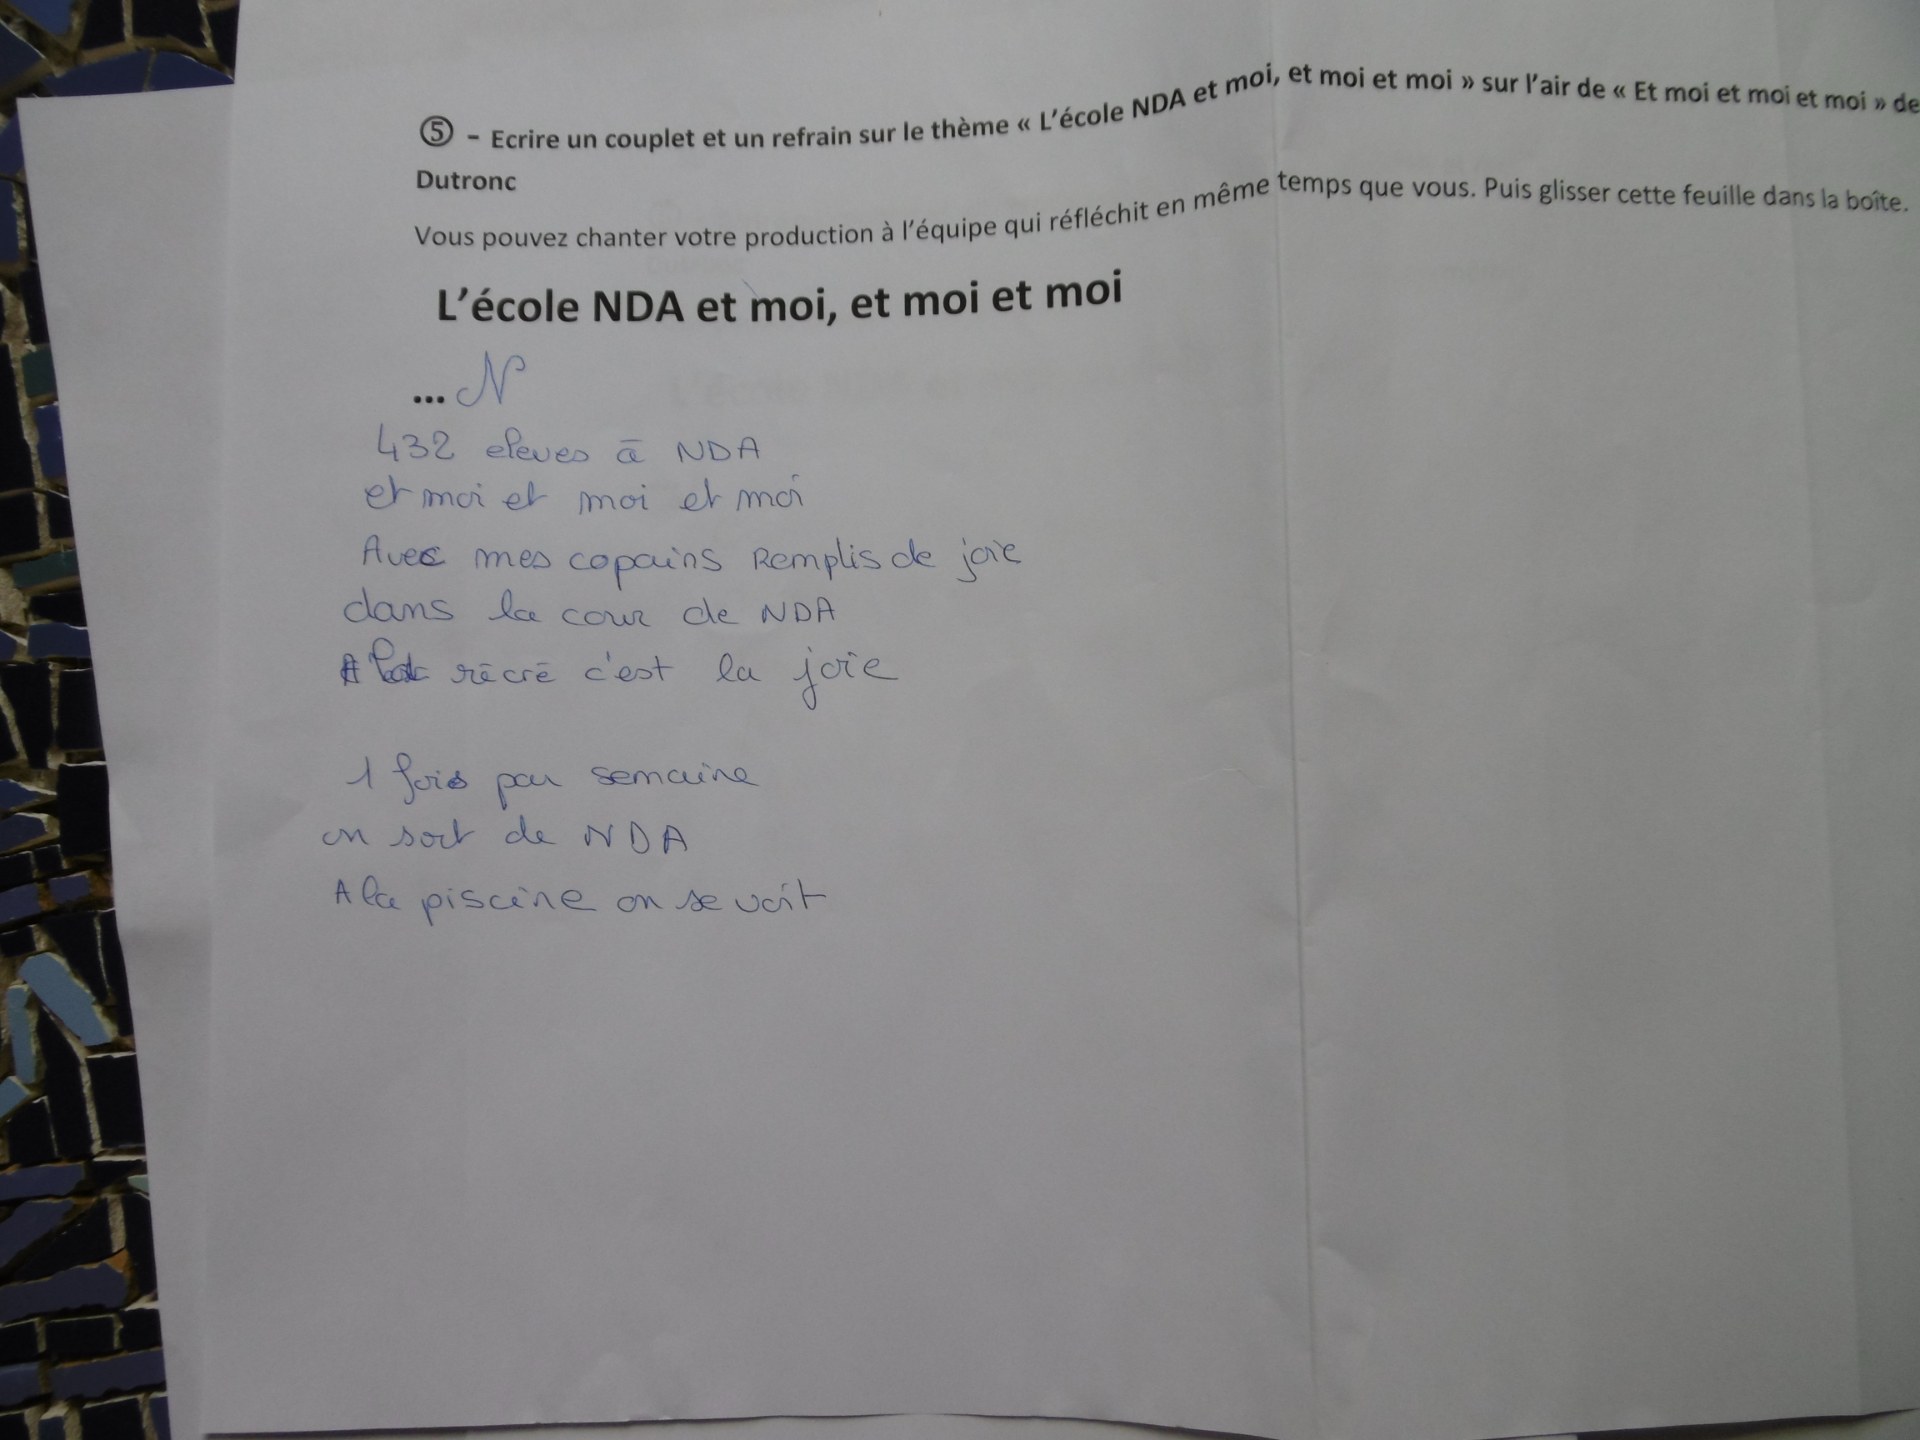 ⑤ - Ecrire un couplet et un refrain sur le thème « L'école NDA et moi, et moi et moi » sur l'air de « Et moi et moi et moi » de
Dutronc
Vous pouvez chanter votre production à l'équipe qui réfléchit en même temps que vous. Puis glisser cette feuille dans la boîte.
L'école NDA et moi, et moi et moi
... N
432 eleves à NDA
et moi et moi et moi
Avec mes copains Remplis de joie
dans la cour de NDA
A la récré c'est la joie
1 fois par semaine
on sort de NDA
A la piscine on se voit